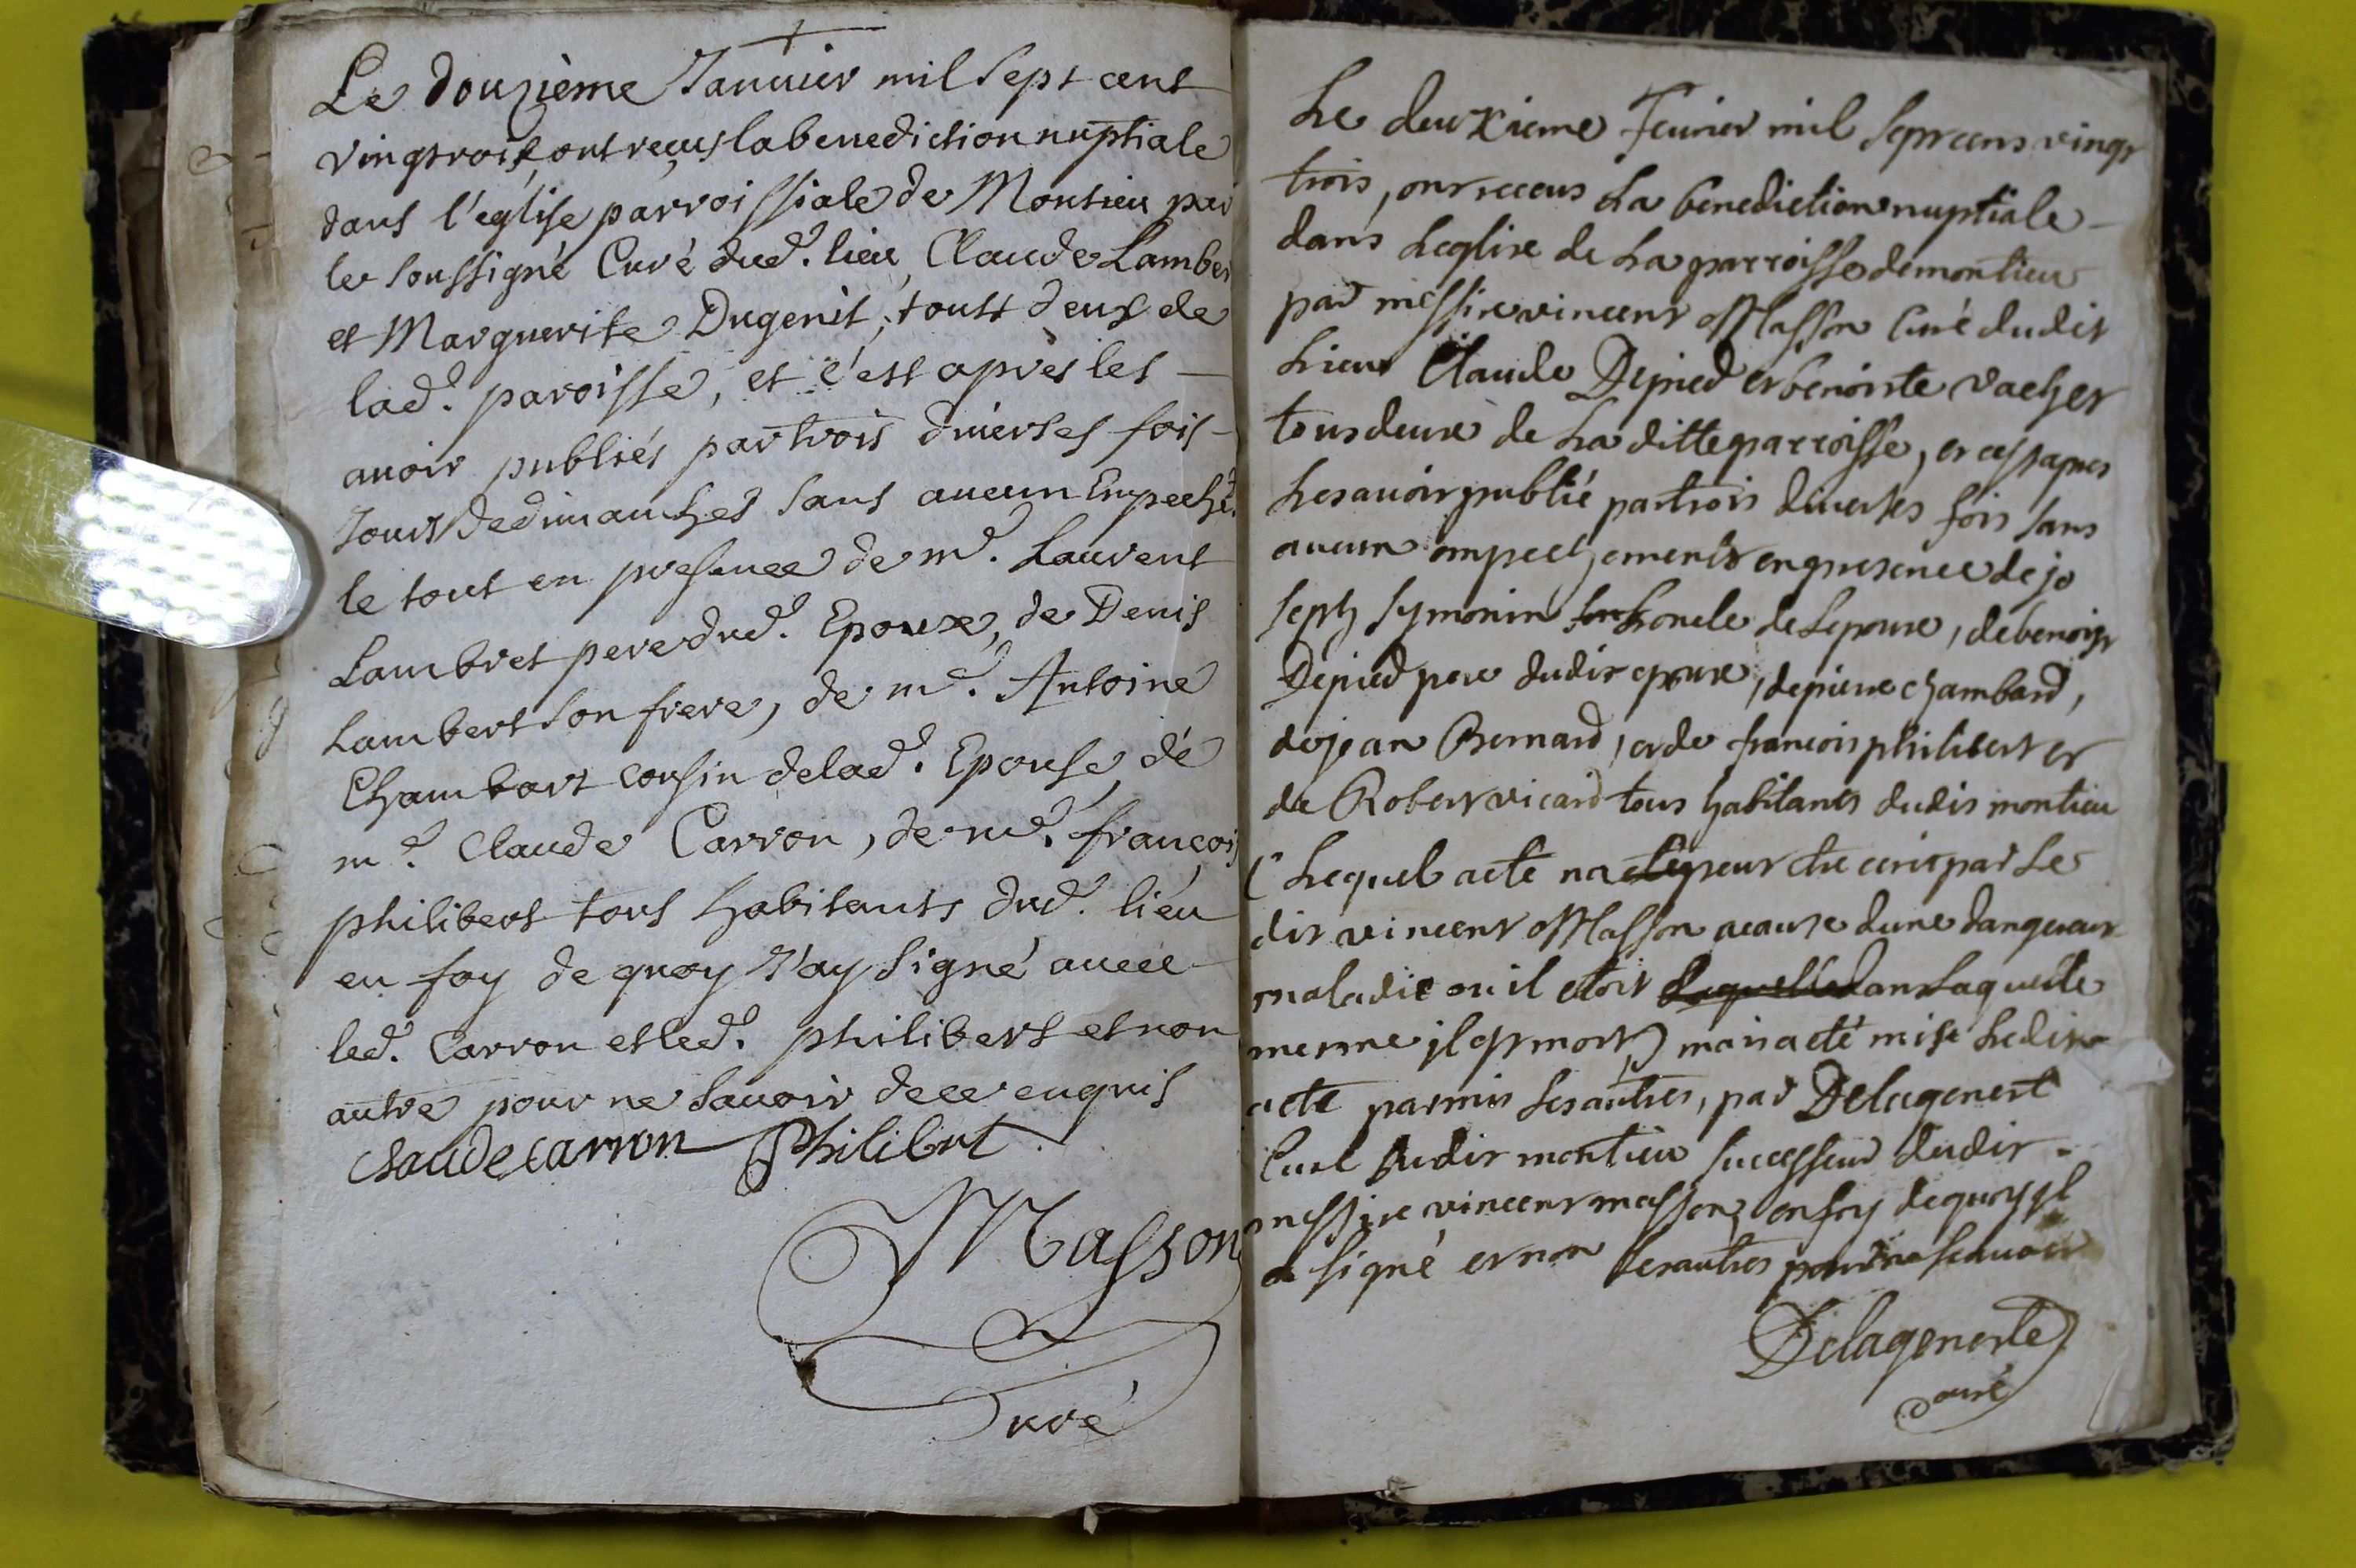 Le douzième Januier mil sept cent
vingtrois, ont reçus la benediction nuptiale
dans l'eglise parroissiale de Montieu par
le soussigné Curé dud. lieu Claude Lamber
et Marguerite Dugenit, touts deux de
lad. paroisse, et c'est après les
auoir publiés par trois diuerses fois
Jours de dimanches sans aucun Empeche.
le tout en presence de m. Laurent
Lambret pere dud. Epoux, de Denis
Lambert son frere, de m. Antoine
Chambart cousin de lad. Epouse, de
m. Claude Carron, de m. françois
philibert tous habitants dud. lieu
en foy de quoy J'ay signé auec
led. Carron et led. philibert et non
autre pour ne sauoir de ce enquis
Claude carron Philibert
Masson
Curé
Le deuxieme Feurier mil sept cens vingt
trois, ont receus La benediction nuptiale
dans Leglise de La parroisse de montieu
par messire vincent Masson Curé dudit
Lieu Claude Depied et benoiste vacher
tous deux de La ditte parroisse, et cest apres
Les auoir publié par trois diuerses fois sans
aucun empechements en presence de jo
seph symonin son Loncle de Lepoux, de benoist
Depied pere dudit epoux, de pierre chambard,
de jean Bernard, et de francois philibert et
de Robert vicard tous habitants dudit montieu
( Lequel acte na peut etre ecrit par Le
dit vincent Masson a cause dune dangereux
maladie ou il etoit Laquelle dans Laquelle
mesme jl est mort) mais a eté mise Ledit
acte parmis Les autres, par Delageneste
Curé dudit montieu successeur dudit
messire vincent masson, en foy de quoy jl
a signé et non Les autres pour ne scauoir
Delageneste
curé